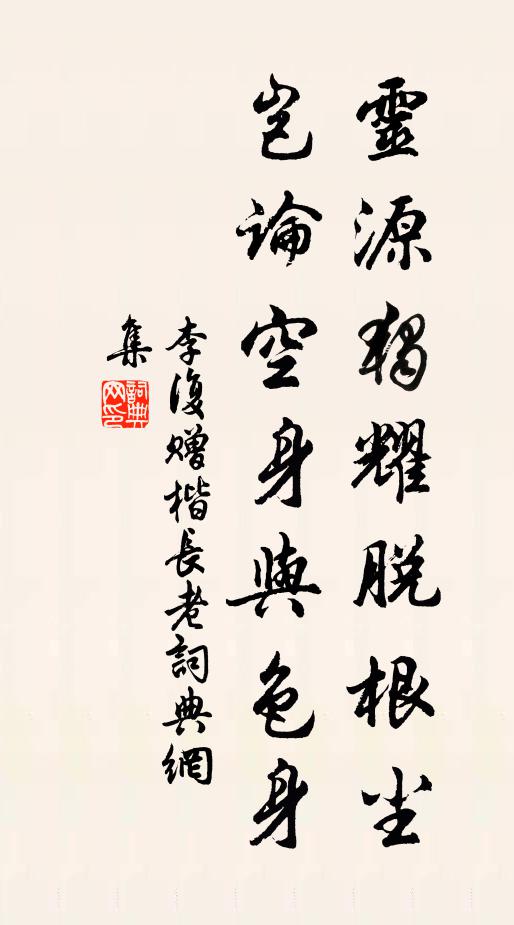 靈源獨耀脫根尘
岂論空身與色身
李復赠楷長老詞典網
集
詞典网印